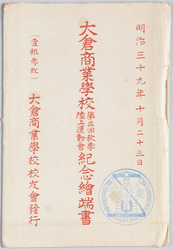 明治三十九年十月二十三日
大倉商業學校第三回秋季陸上運動會紀念繪端書
(壹組叁枚)
大倉商業學校校友會發行